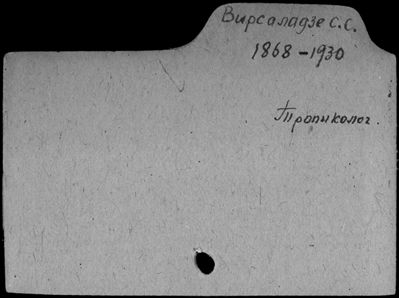 Вирсаладзе С.С.
1868-1930
Тропиколог.